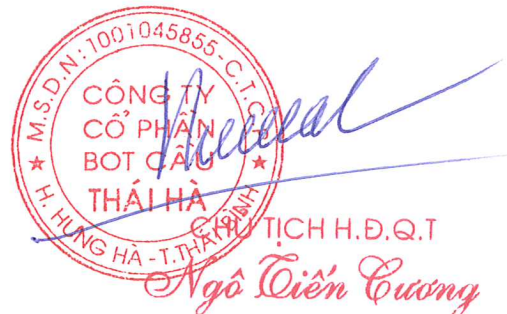 M.S.D.N: 1001045855-C.T.C.P
CÔNG TY
CỔ PHẦN
BOT CẦU
THÁI HÀ
H. HƯNG HÀ - T.THÁI BÌNH
CHỦ TỊCH H.Đ.Q.T
Ngô Tiến Cương